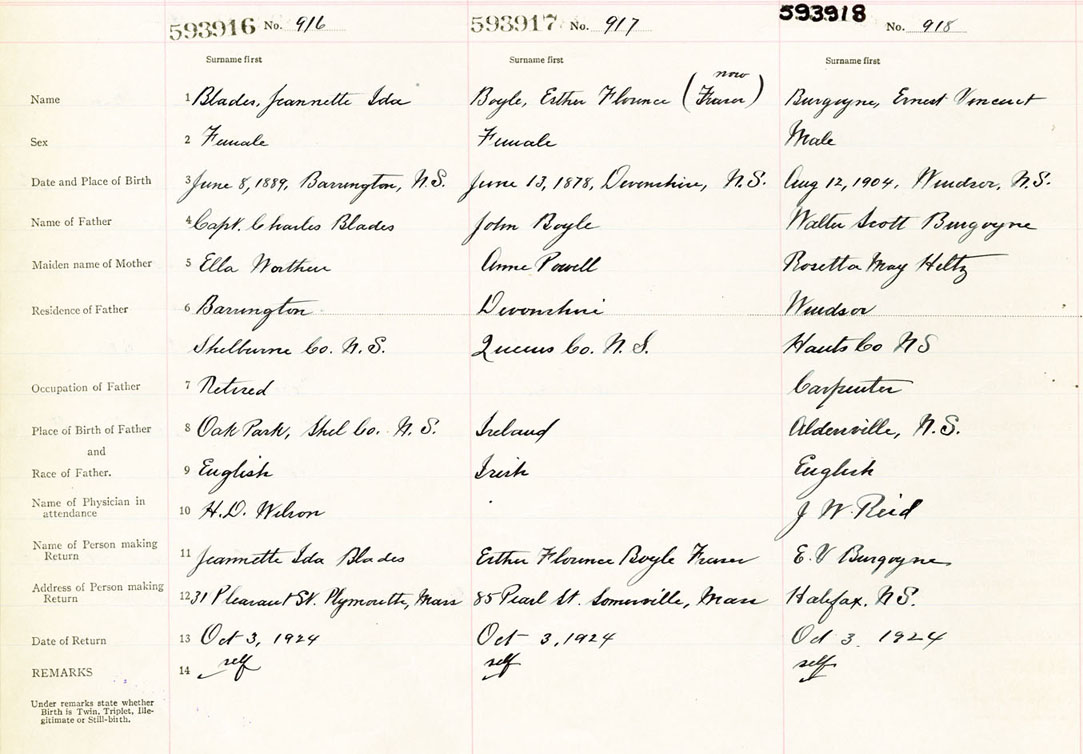 593916 No. 916 593917 No. 917 593918 No. 918
Surname first Surname first Surname first
now
Name 1 Blades, Jeannette Ida Boyle, Esther Florence (Fraser) Burgoyne, Ernest Vincent
Sex 2 Female Female Male
Date and Place of Birth 3 June 8, 1889, Barrington, N.S. June 13, 1878, Devonshire, N.S. Aug 12, 1904, Windsor, N.S.
Name of Father 4 Capt. Charles Blades John Boyle Walter Scott Burgoyne
Maiden name of Mother 5 Ella Worthen Anne Powell Rosetta May Heltz
Residence of Father 6 Barrington Devonshire Windsor
Shelburne Co. N.S. Queens Co. N.S. Hants Co NS
Occupation of Father 7 Retired Carpenter
Place of Birth of Father 8 Oak Park, Shel Co. N.S. Ireland Aldersville, N.S.
and
Race of Father. 9 English Irish English
Name of Physician in
attendance 10 H.D. Wilson J W. Reid
Name of Person making
Return 11 Jeannette Ida Blades Esther Florence Boyle Fraser E. V Burgoyne
Address of Person making
Return 12 31 Pleasant St. Plymouth, Mass 85 Pearl St. Somerville, Mass Halifax, N.S.
Date of Return 13 Oct 3, 1924 Oct 3, 1924 Oct 3. 1924
REMARKS 14 self self self
Under remarks state whether
Birth is Twin, Triplet, Ille-
gitimate or Still-birth.